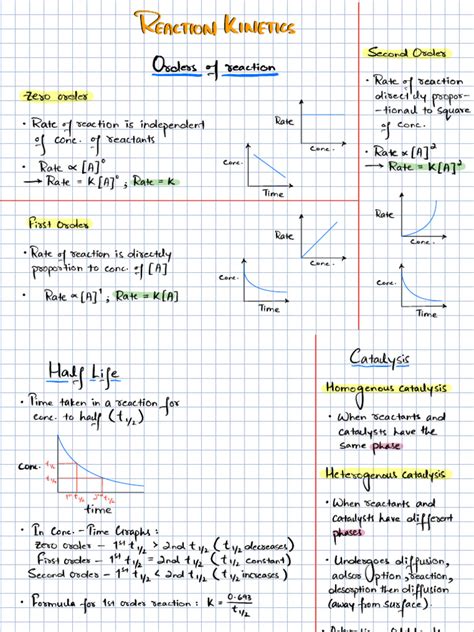 REACTION KINETICS
Orders of reaction
Zero order
• Rate of reaction is independent
of conc. of reactants
• Rate ∝ [A]⁰
→ Rate = K[A]⁰ ; Rate = K
Rate
Conc.
Conc.
Time
First Order
• Rate of reaction is directly
proportion to conc. of [A]
• Rate ∝ [A]¹ ; Rate = K[A]
Rate
Conc.
Conc.
Time
Second Order
• Rate of reaction
directly propor-
-tional to square
of conc.
• Rate ∝ [A]²
→ Rate = K[A]²
Rate
Conc.
Conc.
Time
Half Life
• Time taken in a reaction for
conc. to half (t1/2)
Conc.
t1/2
t1/2
1st t1/2 2nd t1/2
time
• In Conc.-Time Graphs :
Zero order - 1st t1/2 > 2nd t1/2 (t1/2 decreases)
First order - 1st t1/2 = 2nd t1/2 (t1/2 constant)
Second Order - 1st t1/2 < 2nd t1/2 (t1/2 increases)
• Formula for 1st order reaction : K = 0.693
t1/2
Catalysis
Homogenous catalysis
• When reactants and
catalysts have the
same phase
Heterogenous catalysis
• When reactants and
catalysts have different
phases
• Undergoes diffusion,
adsorption, reaction,
desorption then diffusion
(away from surface).